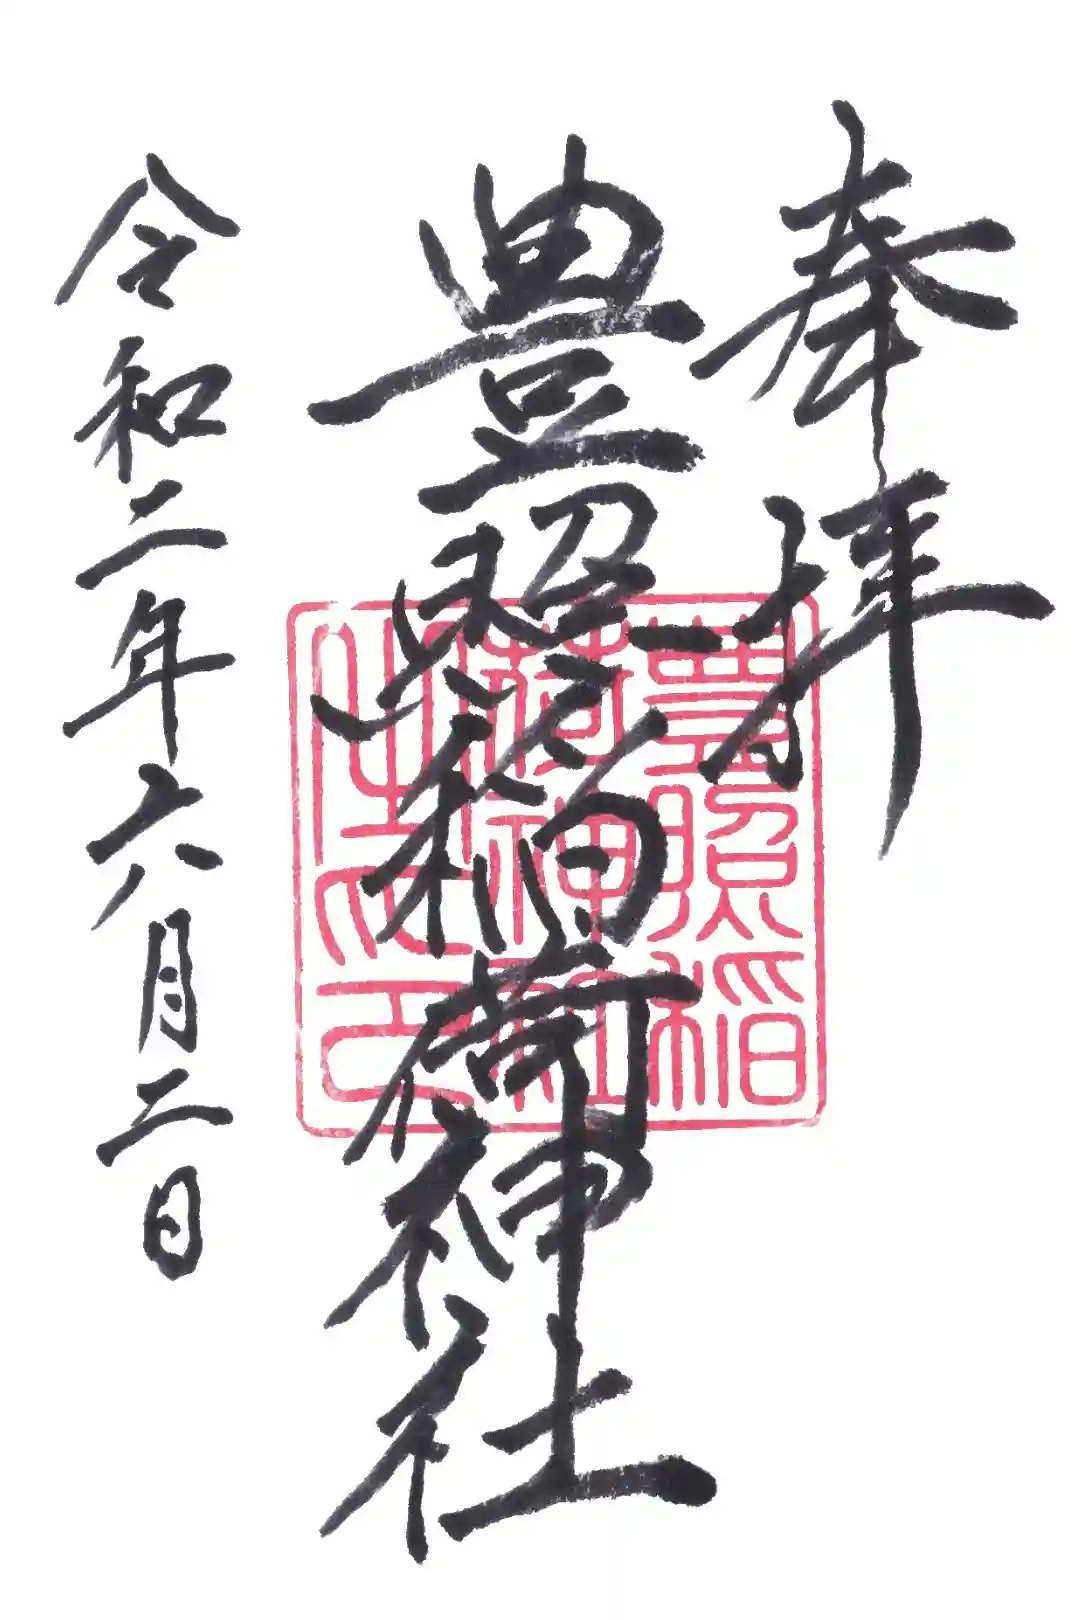 奉拝
豊照稲荷神社
令和二年六月二日
豊照稲
荷神社
之印